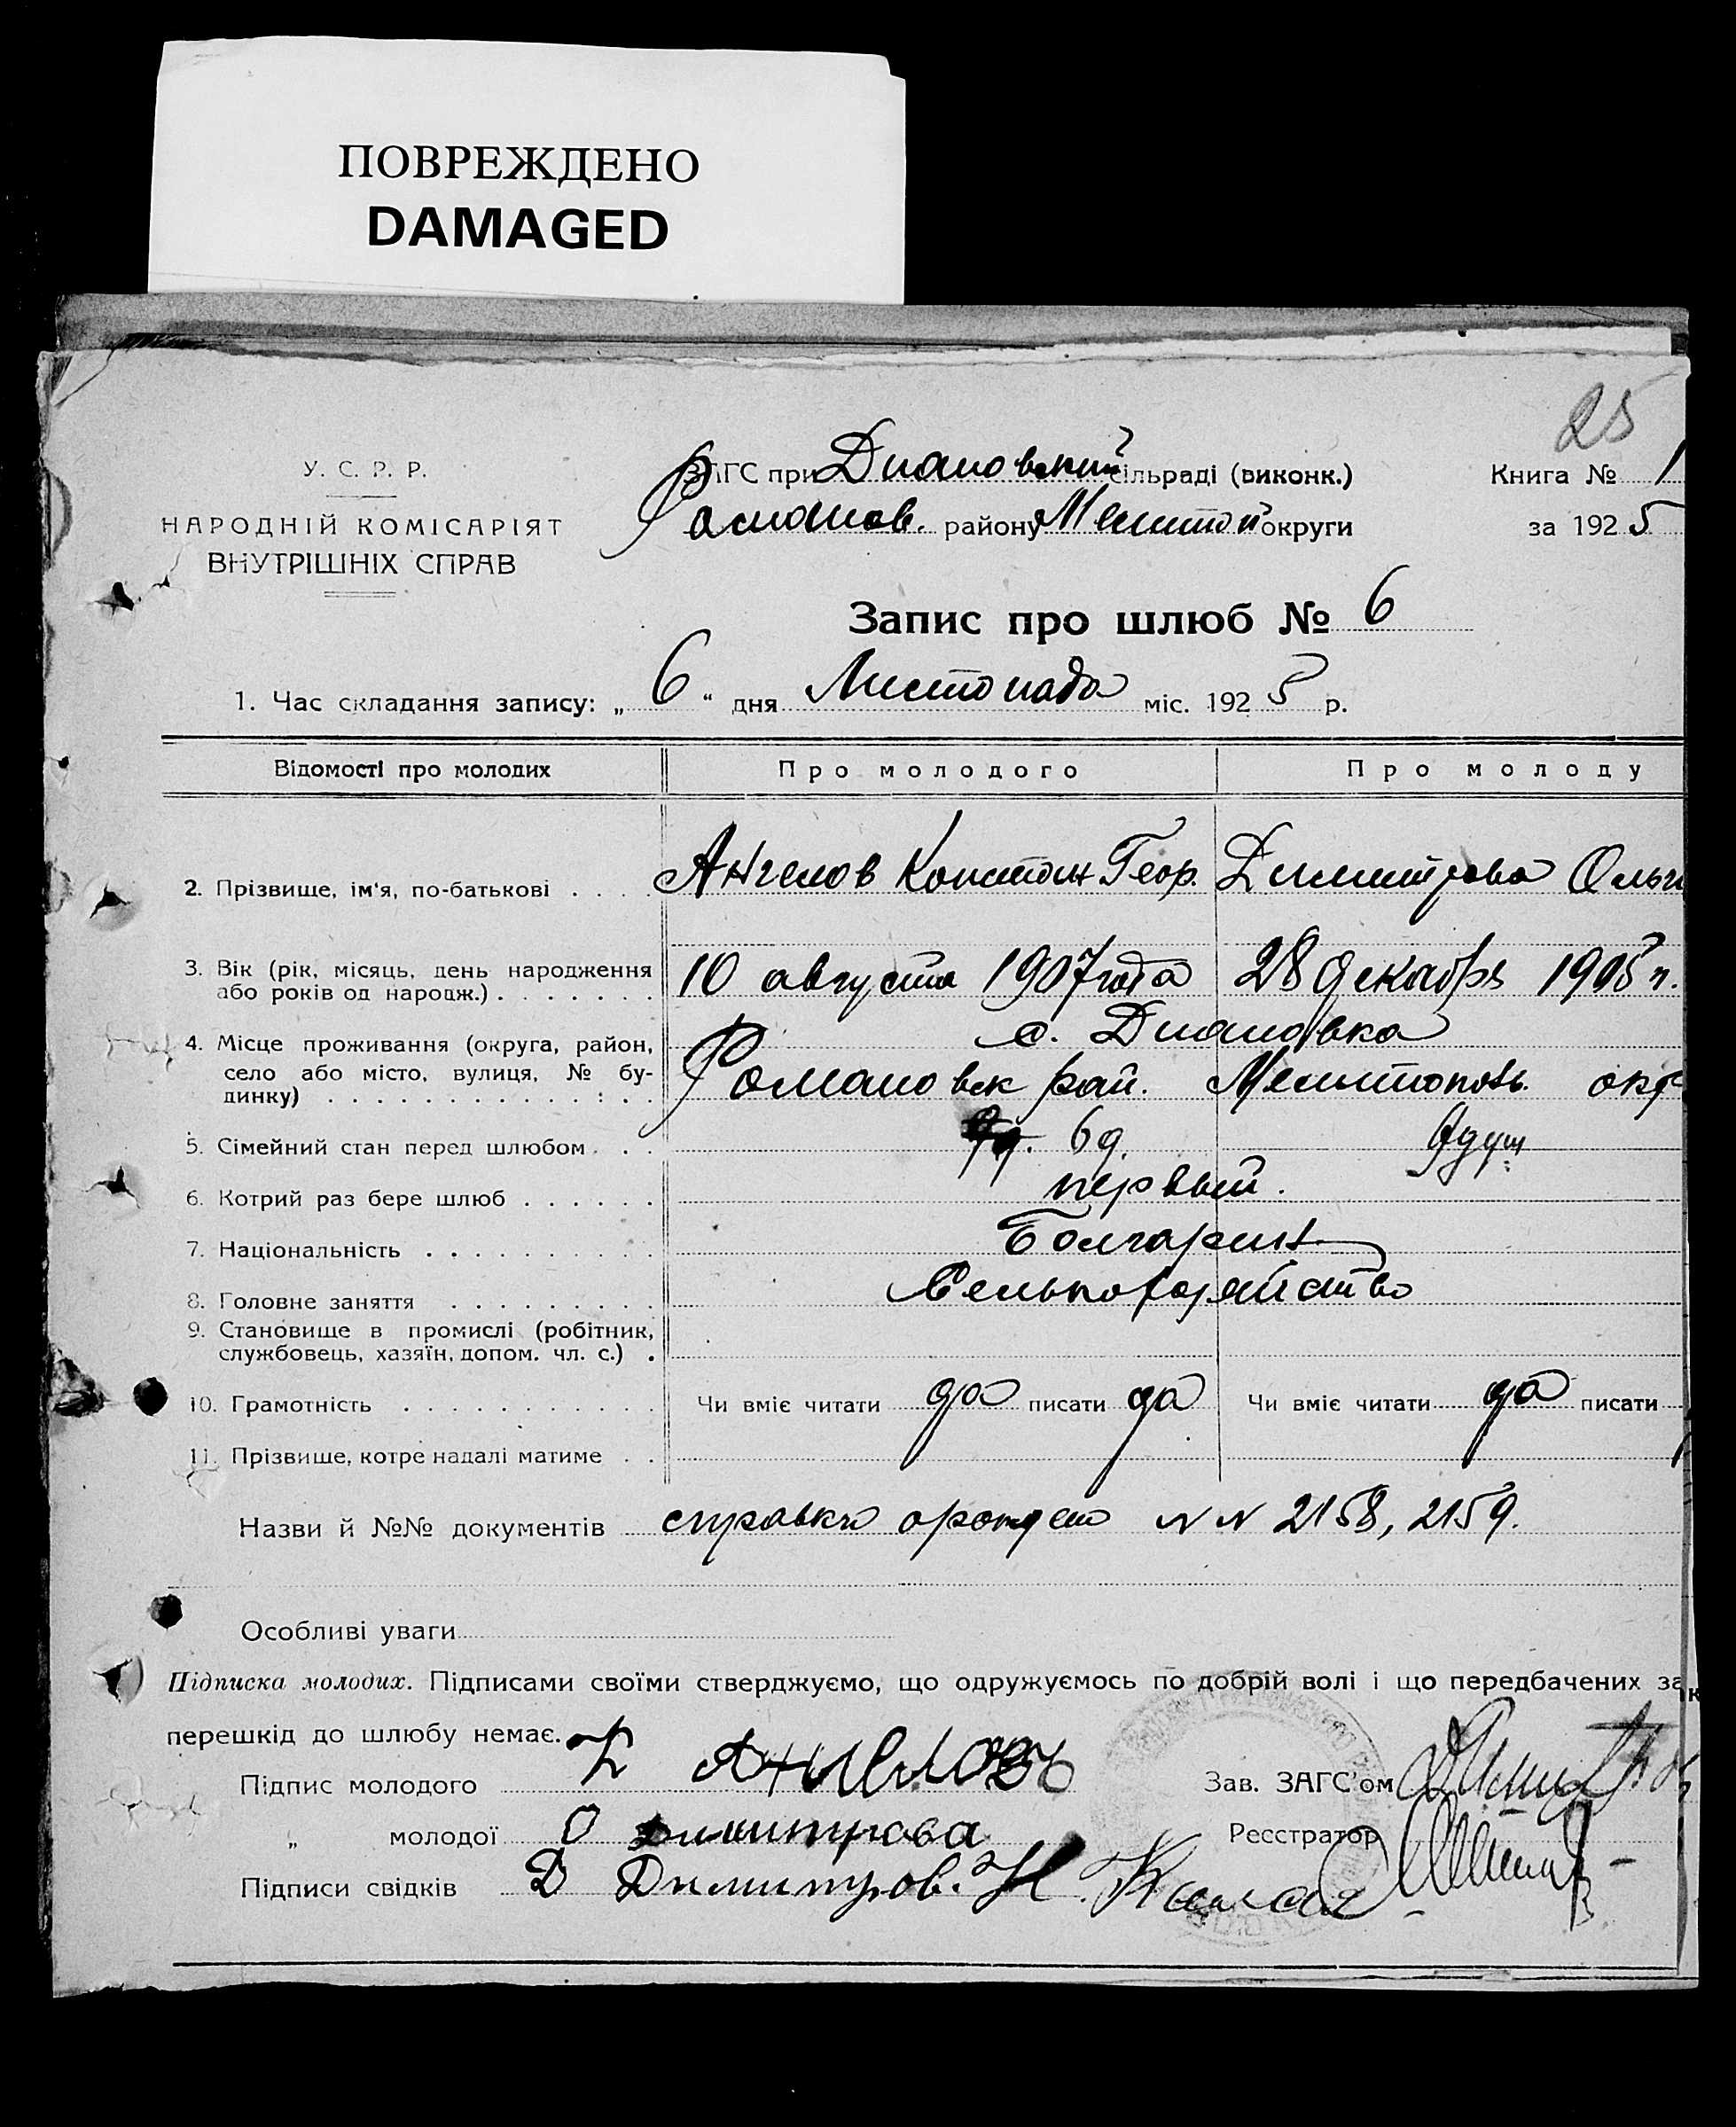 ПОВРЕЖДЕНО
DAMAGED
25
У. С. Р. Р.
НАРОДНІЙ КОМІСАРІЯТ
ВНУТРІШНІХ СПРАВ
ЗАГС при Диановский сільраді (виконк.)
Романов. району Мелитоп округи
Книга № 1
за 1925
Запис про шлюб № 6
1. Час складання запису: „ 6 “ дня Листопада міс. 1925 р.
Відомості про молодих
Про молодого
Про молоду
2. Прізвище, ім‘я, по-батькові
Ангелов Констан Геор.
Димитрова Ольг
3. Вік (рік, місяць, день народження
або років од народж.)
10 августа 1907 года
28 декабрь 1905 г.
4. Місце проживання (округа, район,
село або місто, вулиця, № бу-
динку)
с. Диановка
Романовск рай. Мелитоповь. окр
5. Сімейний стан перед шлюбом
6д.
9душ
6. Котрий раз бере шлюб
первый.
7. Національність
Болгарин
8. Головне заняття
Сельхозяйство
9. Становище в промислі (робітник,
службовець, хазяїн, допом. чл. с.)
10. Грамотність
Чи вміє читати да писати да
Чи вміє читати да писати
11. Прізвище, котре надалі матиме
Назви й №№ документів справки орожден N N 2158, 2159.
Особливі уваги
Підписка молодих. Підписами своїми стверджуємо, що одружуємось по добрій волі і що передбачених зак
перешкід до шлюбу немає.
Підпис молодого К Ангеловъ
Зав. ЗАГС’ом
„ молодої О Димитрова
Реєстратор
Підписи свідків Д Димитров. Н.